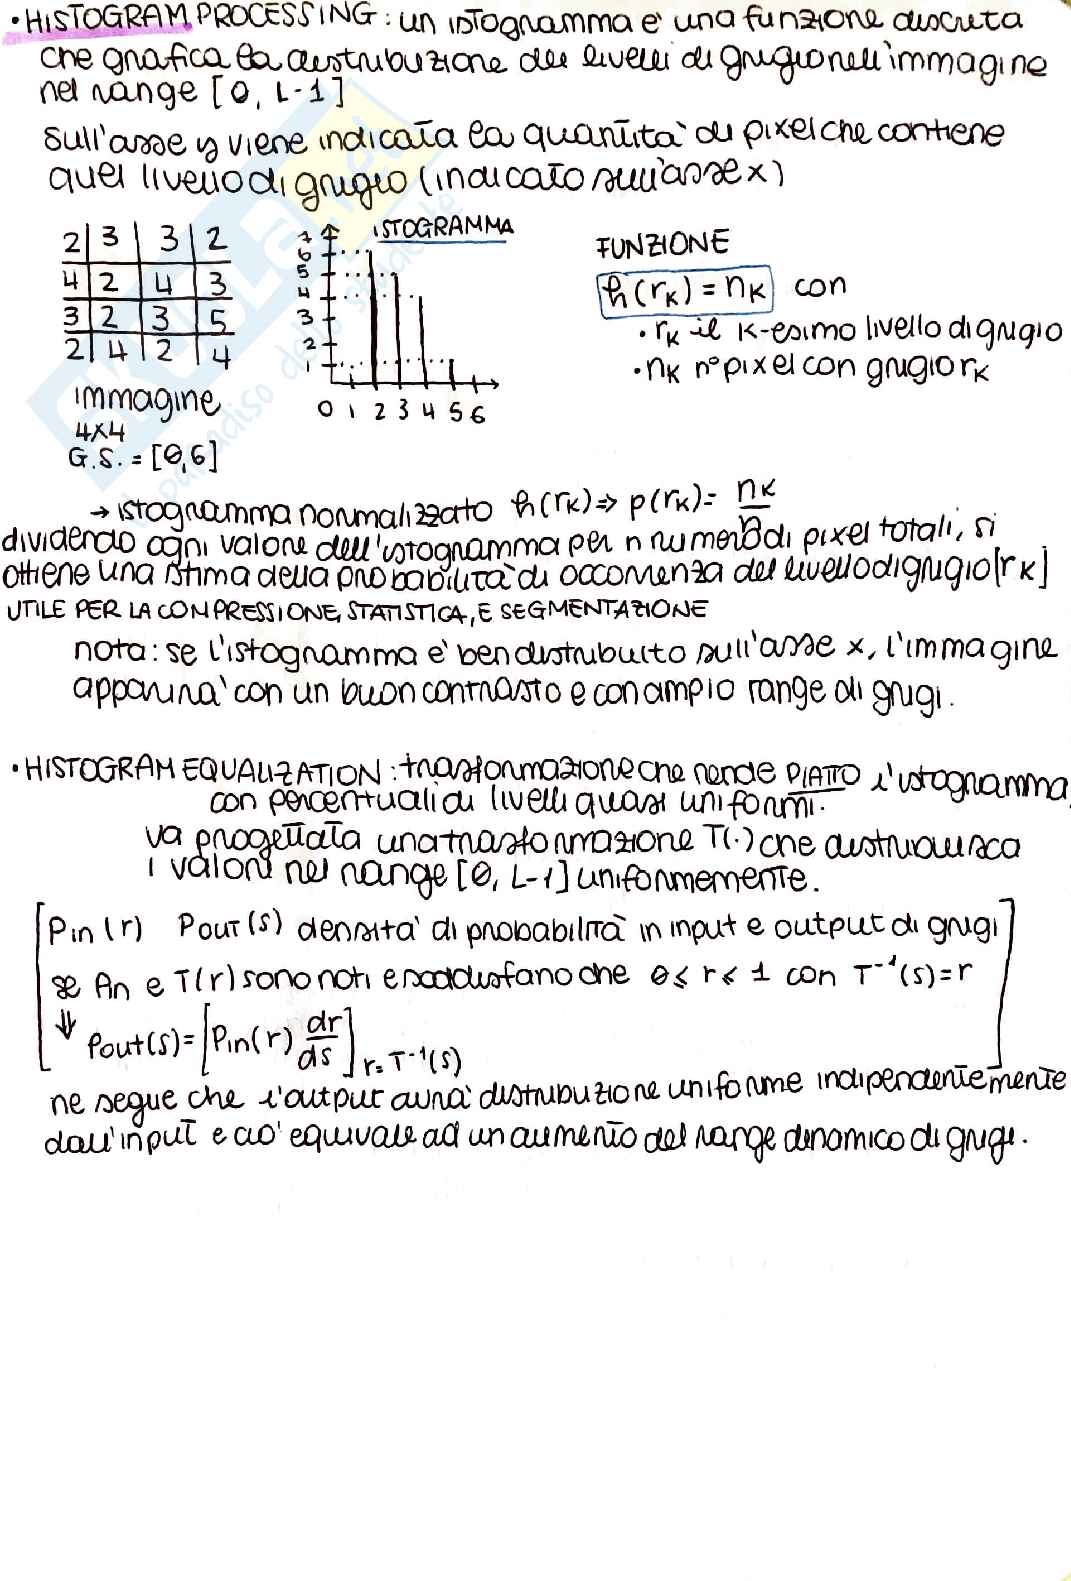 • HISTOGRAM PROCESSING : un istogramma è una funzione discreta
che grafica la distribuzione dei livelli di grigio nell'immagine
nel range [0, L-1]
Sull'asse y viene indicata la quantità di pixel che contiene
quel livello di grigio (indicato sull'asse x)
2 3 3 2
4 2 4 3
3 2 3 5
2 4 2 4
immagine
4x4
G.S. = [0,6]
ISTOGRAMMA
7
6
5
4
3
2
1
0 1 2 3 4 5 6
FUNZIONE
h(rk) = nk con
• rk il k-esimo livello di grigio
• nk n° pixel con grigio rk
→ istogramma normalizzato h(rk) ⇒ p(rk) = nk/n
dividendo ogni valore dell'istogramma per n numero di pixel totali, si
ottiene una stima della probabilità di occorrenza del livello di grigio [rk]
UTILE PER LA COMPRESSIONE, STATISTICA, E SEGMENTAZIONE
nota: se l'istogramma è ben distribuito sull'asse x, l'immagine
apparirà con un buon contrasto e con ampio range di grigi.
• HISTOGRAM EQUALIZATION : trasformazione che rende PIATTO l'istogramma,
con percentuali di livelli quasi uniformi.
va progettata una trasformazione T(·) che distribuisca
i valori nel range [0, L-1] uniformemente.
Pin(r) Pout(s) densità di probabilità in input e output di grigi
se Pin e T(r) sono noti e soddisfano che 0 ≤ r ≤ 1 con T⁻¹(s)=r
⇓ Pout(s) = [Pin(r) dr/ds] r=T⁻¹(s)
ne segue che l'output avrà distribuzione uniforme indipendentemente
dall'input e ciò equivale ad un aumento del range dinamico di grigi.